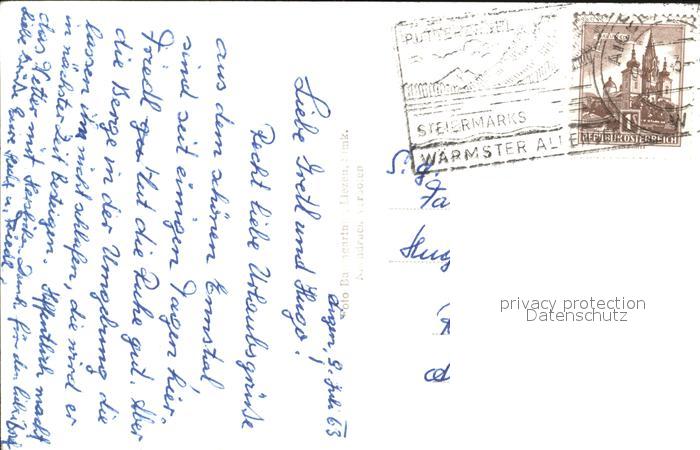 Irgen, 9. Juli 63
Liebe Gretl und Hugo!
Recht liebe Urlaubsgrüße
aus dem schönen Ennstal,
sind seit einigen Tagen hier.
Friedl tut die Ruhe gut. Aber
die Berge in der Umgebung die
lassen ihn nicht schlafen, die wird er
in nächster Zeit besteigen. Hoffentlich macht
das Wetter mit. Herzlichen Dank für den lieben Brief
liebe Grüße Eure u. Friedl.
Foto Liezen,
verboten
PUTTERERSEE
STEIERMARKS
WÄRMSTER ALPE
1S
REPUBLIK ÖSTERREICH
Fa
Hug
privacy protection
Datenschutz